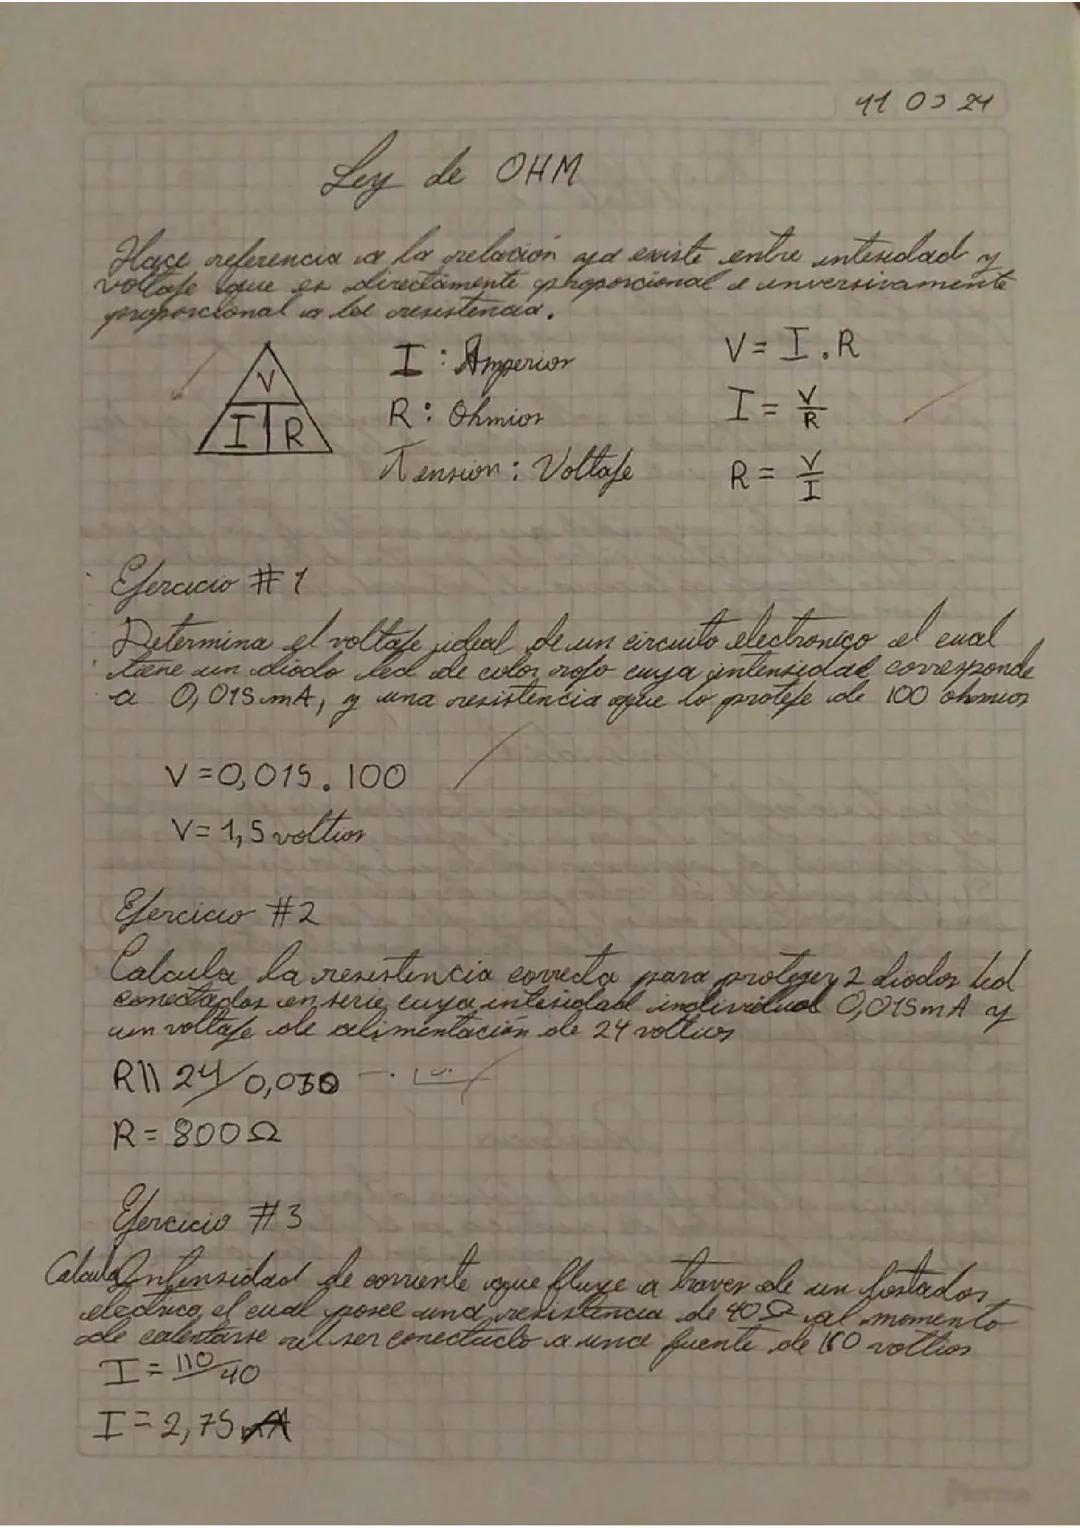 11 03 24
Ley de OHM
Hace referencia a la relación que existe entre intesidad y
voltaje que es directamente proporcional e inversivamente
proporcional a la resistencia.
V
I R
I : Amperios
R : Ohmios
Tension : Voltaje
V = I . R
I = V/R
R = V/I
Ejercicio # 1
Determina el voltaje ideal de un circuito electronico el cual
tiene un diodo led de color rojo cuya intensidad corresponde
a 0,015 mA, y una resistencia que lo proteje de 100 ohmios
V = 0,015 . 100
V = 1,5 voltios
Ejercicio #2
Calcula la resistencia correcta para proteger 2 diodos led
conectados en serie cuya intesidad individual 0,015 mA y
un voltaje de alimentación de 24 voltios
24/0,030
R = 800 Ω
Ejercicio #3
Calcula Intensidad de corriente que fluye a traves de un tostador
electrico, el cual posee una resistencia de 40 Ω al momento
de calentarse al ser conectado a una fuente de voltios
I = 110/40
I = 2,75 A